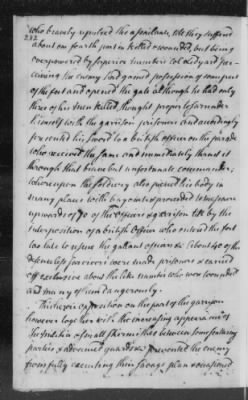 232
who bravely repulsed the assailants, tho they suffered
about one fourth part in killed & wounded, but being
overpowered by superior numbers Col Ledyard per-
ceiving the enemy had gained possession of some part
of the fort and opened the gate although he had only
three of his men killed thought proper to surrender
himself with the garrison prisoners and accordingly
presented his Sword to a british officer on the parade
who received the same and immediately thrust it
through that brave but unfortunate commander,
whereupon the soldiery also pierced his body in
many places with bayonets & proceeded to massacre
upwards of 70 of the officers & garrison till by the
interposition of a british Officer who entered the fort
too late to rescue the gallant officers & about 40 of the
defenceless survivors were made prisoners & carried
off exclusive about the like number who were wounded
and many of them dangerously.
opposition on the part of the garrison
however together with the increasing appearances of
the militia & small skirmishes between some
parties & advanced guards prevented the enemy
from fully executing their savage plan